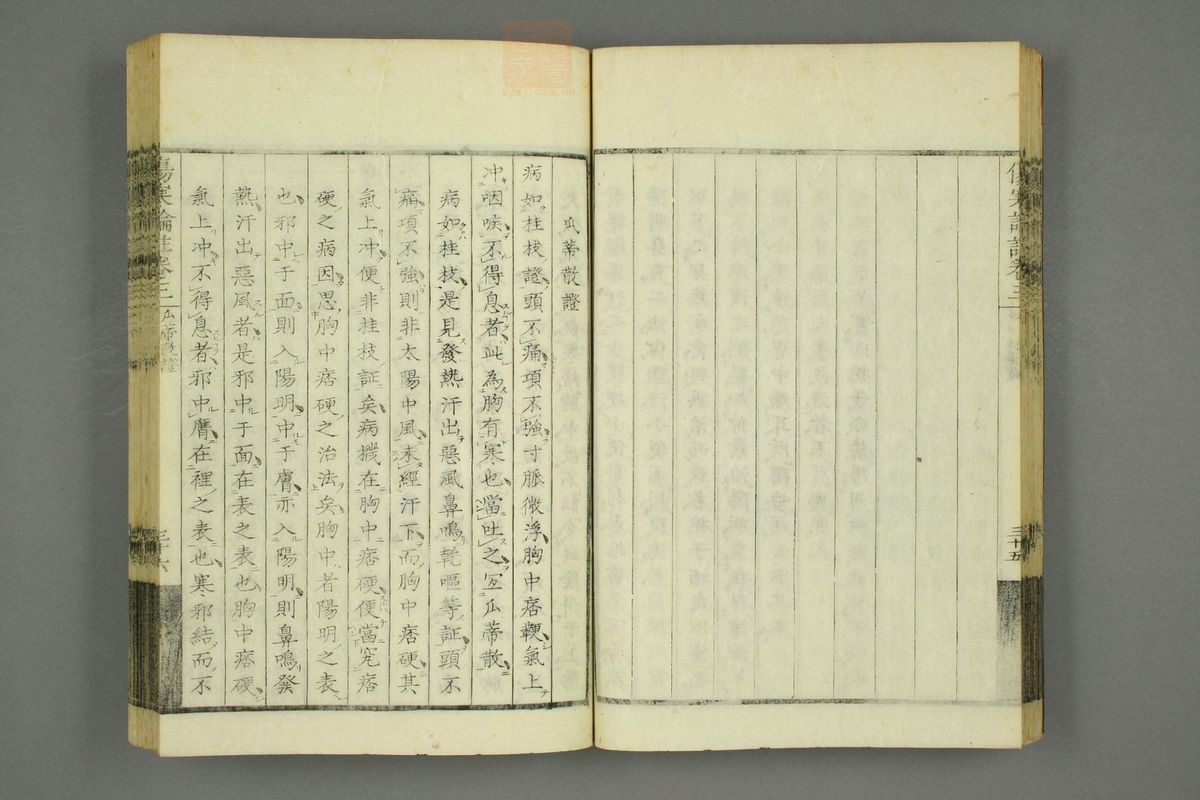 傷寒論註卷三
三十五
瓜蒂散證
病如桂枝證頭不痛項不強寸脈微浮胸中痞鞕氣上
冲咽喉不得息者此為胸有寒也當吐之宜瓜蒂散
病如桂枝是見發熱汗出惡風鼻鳴乾嘔等証頭不
痛項不強則非太陽中風未經汗下而胸中痞硬其
氣上冲便非桂枝証矣病機在胸中痞硬便當究痞
硬之病因思胸中痞硬之治法矣胸中者陽明之表
也邪中于面則入陽明中于膺亦入陽明則鼻鳴發
熱汗出惡風者是邪中于面在表之表也胸中痞硬
氣上冲不得息者邪中膺在裡之表也寒邪結而不
傷寒論註卷三 瓜蒂散證
三十六
zysj.com.cn